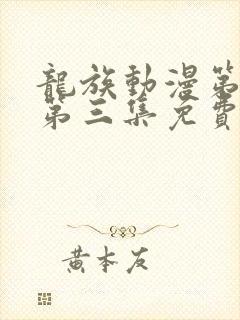 龍族動漫第
第三集免費
黃本友